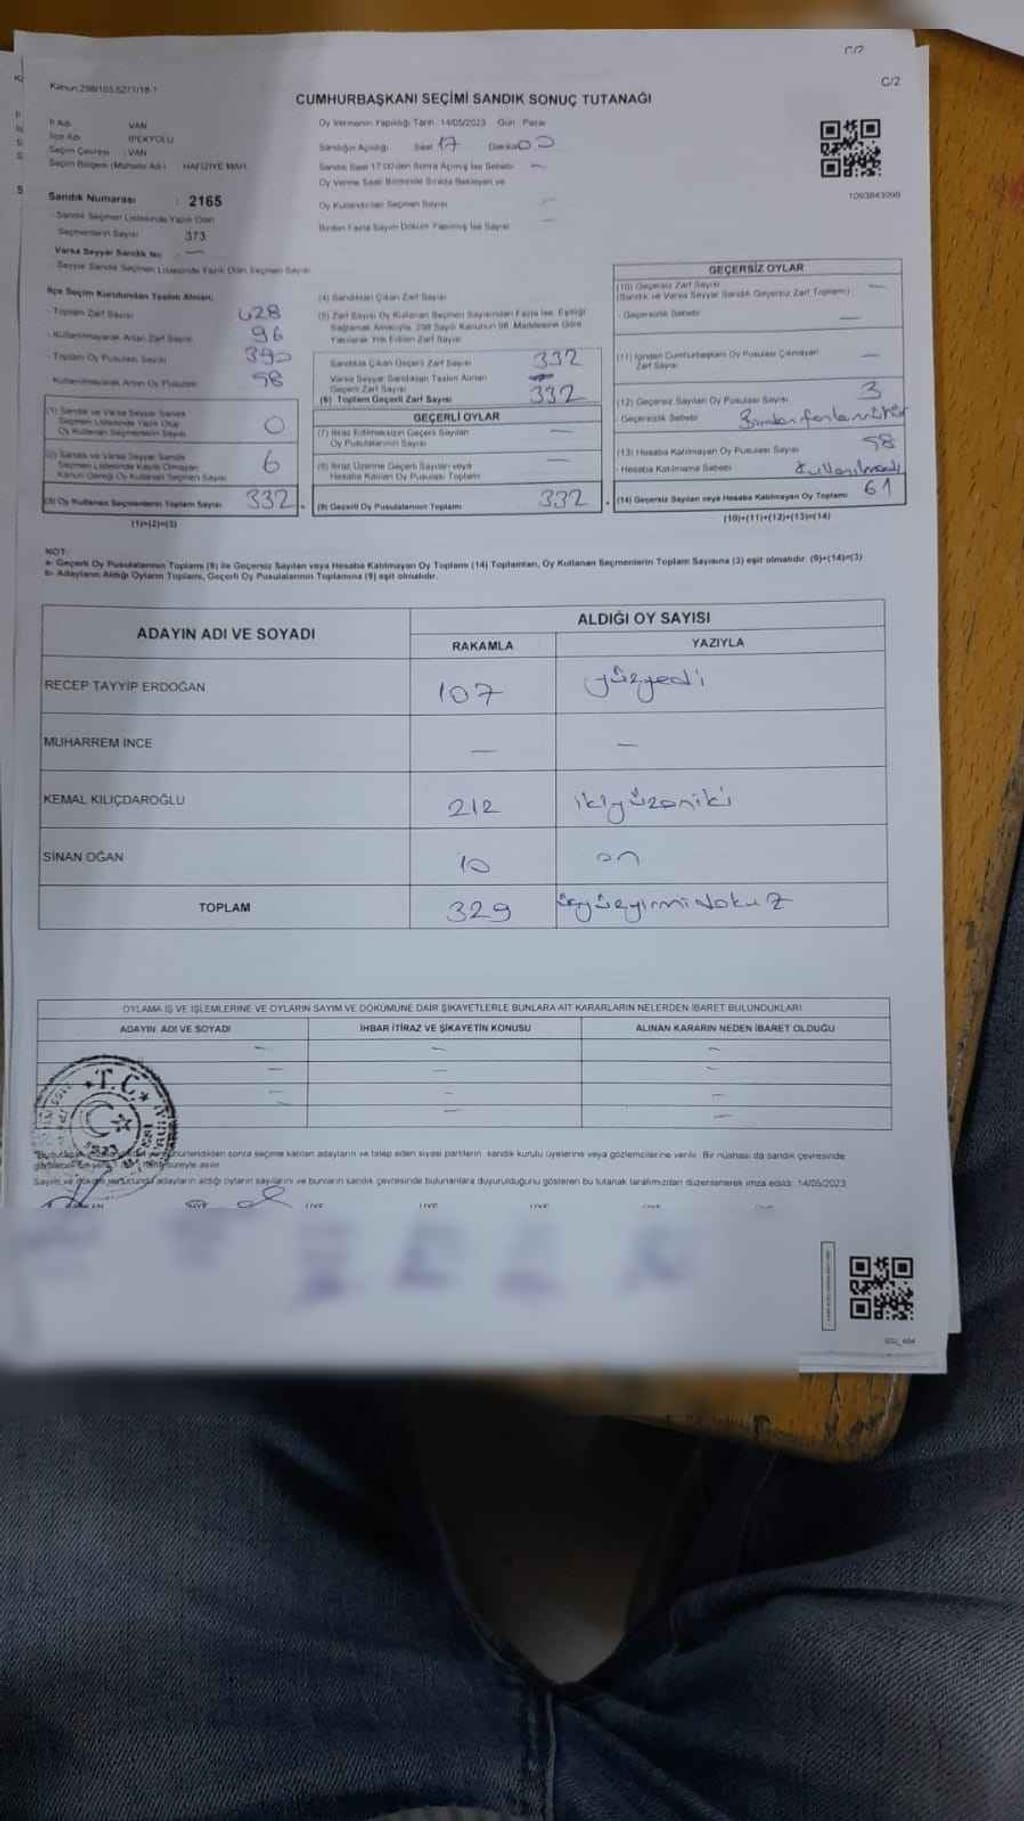 C/2
C/2
Kanun:298/105.5271/18-1
CUMHURBAŞKANI SEÇİMİ SANDIK SONUÇ TUTANAĞI
İl Adı VAN
İlçe Adı İPEKYOLU
Seçim Çevresi : VAN
Seçim Bölgesi (Muhtarlık Adı) : HAFIZİYE MAH.
Sandık Numarası : 2165
Sandık Seçmen Listesinde Yazılı Olan
Seçmenlerin Sayısı 373
Varsa Seyyar Sandık No —
Seyyar Sandık Seçmen Listesinde Yazılı Olan Seçmen Sayısı
Oy Vermenin Yapıldığı Tarih: 14/05/2023 Gün: Pazar
Sandığın Açıldığı Saat 17 Dakika 00
Sandık Saat 17.00'den Sonra Açılmış İse Sebebi —
Oy Verme Saati Bitiminde Sırada Bekleyen ve
Oy Kullandırılan Seçmen Sayısı —
Birden Fazla Sayım Döküm Yapılmış İse Sayısı
1093843098
İlçe Seçim Kurulundan Teslim Alınan;
- Toplam Zarf Sayısı 428
- Kullanılmayarak Artan Zarf Sayısı 96
- Toplam Oy Pusulası Sayısı 390
- Kullanılmayarak Artan Oy Pusulası 58
(1) Sandık ve Varsa Seyyar Sandık
Seçmen Listesinde Yazılı Olup
Oy Kullanan Seçmenlerin Sayısı 0
(2) Sandık ve Varsa Seyyar Sandık
Seçmen Listesinde Kayıtlı Olmayan
Kanun Gereği Oy Kullanan Seçmen Sayısı 6
(3) Oy Kullanan Seçmenlerin Toplam Sayısı 332
(1)+(2)=(3)
(4) Sandıktan Çıkan Zarf Sayısı
(5) Zarf Sayısı Oy Kullanan Seçmen Sayısından Fazla İse, Eşitliği
Sağlamak Amacıyla, 298 Sayılı Kanunun 98. Maddesine Göre
Yakılarak Yok Edilen Zarf Sayısı
Sandıkta Çıkan Geçerli Zarf Sayısı 332
Varsa Seyyar Sandıktan Teslim Alınan
Geçerli Zarf Sayısı
(6) Toplam Geçerli Zarf Sayısı 332
GEÇERLİ OYLAR
(7) İtiraz Edilmeksizin Geçerli Sayılan
Oy Pusulalarının Sayısı —
(8) İtiraz Üzerine Geçerli Sayılan veya
Hesaba Katılan Oy Pusulası Toplamı —
(9) Geçerli Oy Pusulalarının Toplamı 332
GEÇERSİZ OYLAR
(10) Geçersiz Zarf Sayısı
(Sandık ve Varsa Seyyar Sandık Geçersiz Zarf Toplamı) —
Geçersizlik Sebebi —
(11) İçinden Cumhurbaşkanı Oy Pusulası Çıkmayan
Zarf Sayısı —
(12) Geçersiz Sayılan Oy Pusulası Sayısı 3
Geçersizlik Sebebi Birden fazla mühür
(13) Hesaba Katılmayan Oy Pusulası Sayısı 58
Hesaba Katılmama Sebebi Kullanılmadı
(14) Geçersiz Sayılan veya Hesaba Katılmayan Oy Toplamı 61
(10)+(11)+(12)+(13)=(14)
NOT:
a- Geçerli Oy Pusulalarının Toplamı (9) ile Geçersiz Sayılan veya Hesaba Katılmayan Oy Toplamı (14) Toplamları, Oy Kullanan Seçmenlerin Toplam Sayısına (3) eşit olmalıdır. (9)+(14)=(3)
b- Adayların Aldığı Oyların Toplamı, Geçerli Oy Pusulalarının Toplamına (9) eşit olmalıdır.
ADAYIN ADI VE SOYADI
ALDIĞI OY SAYISI
RAKAMLA YAZIYLA
RECEP TAYYİP ERDOĞAN 107 yüzyedi
MUHARREM İNCE — —
KEMAL KILIÇDAROĞLU 212 ikiyüzoniki
SİNAN OĞAN 10 on
TOPLAM 329 üçyüzyirmidokuz
OYLAMA İŞ VE İŞLEMLERİNE VE OYLARIN SAYIM VE DÖKÜMÜNE DAİR ŞİKAYETLERLE BUNLARA AİT KARARLARIN NELERDEN İBARET BULUNDUKLARI
ADAYIN ADI VE SOYADI İHBAR İTİRAZ VE ŞİKAYETİN KONUSU ALINAN KARARIN NEDEN İBARET OLDUĞU
— — —
— — —
— — —
— — —
T.C.
sonra seçime katılan adayların ve talep eden siyasi partilerin sandık kurulu üyelerine veya gözlemcilerine verilir. Bir nüshası da sandık çevresinde
süreyle asılır.
adayların aldığı oyların sayılarını ve bunların sandık çevresinde bulunanlara duyurulduğunu gösteren bu tutanak tarafımızdan düzenlenerek imza edildi. 14/05/2023